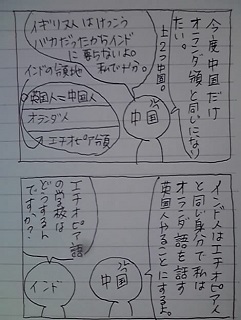 今度中国だけ
オランダ領と同じになり
たい。
上2つ中国。
イギリス人はけっこう
バカだったからインド
に要らないよ。
インドの領地
英国人=中国人
オランダ人
エチオピア領
中国
インド人はエチオピア人
と同じ身分で私は
オランダ語を話す
英国人やることにするよ。
中国
エチオピア語
の学校は
どうするん
ですか?
インド